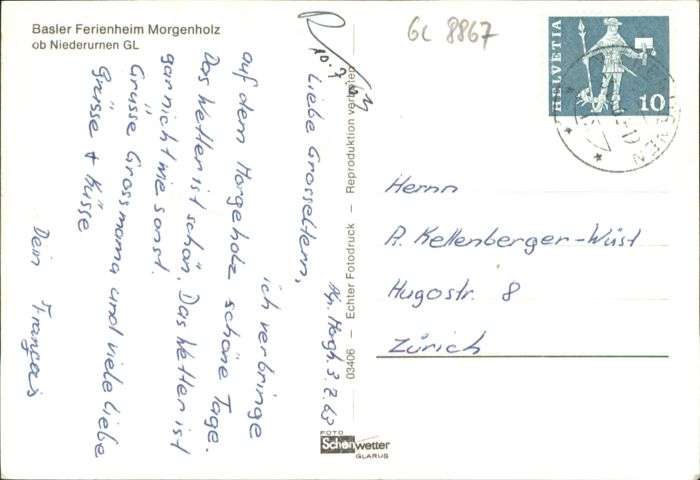 Basler Ferienheim Morgenholz
ob Niederurnen GL
GL 8867
HELVETIA
10
Liebe Grosseltern,
ich verbringe
auf dem Morgeholz schöne Tage.
Das Wetter ist schön. Das Wetter ist
gar nicht wie sonst.
Grüsse Grossmama und viele liebe
Grüsse + Küsse
Dein François
03406 – Echter Fotodruck – Reproduktion verboten
Herrn
A. Kellenberger-Wüst
Hugostr. 8
Zürich
FOTO
Schönwetter
GLARUS